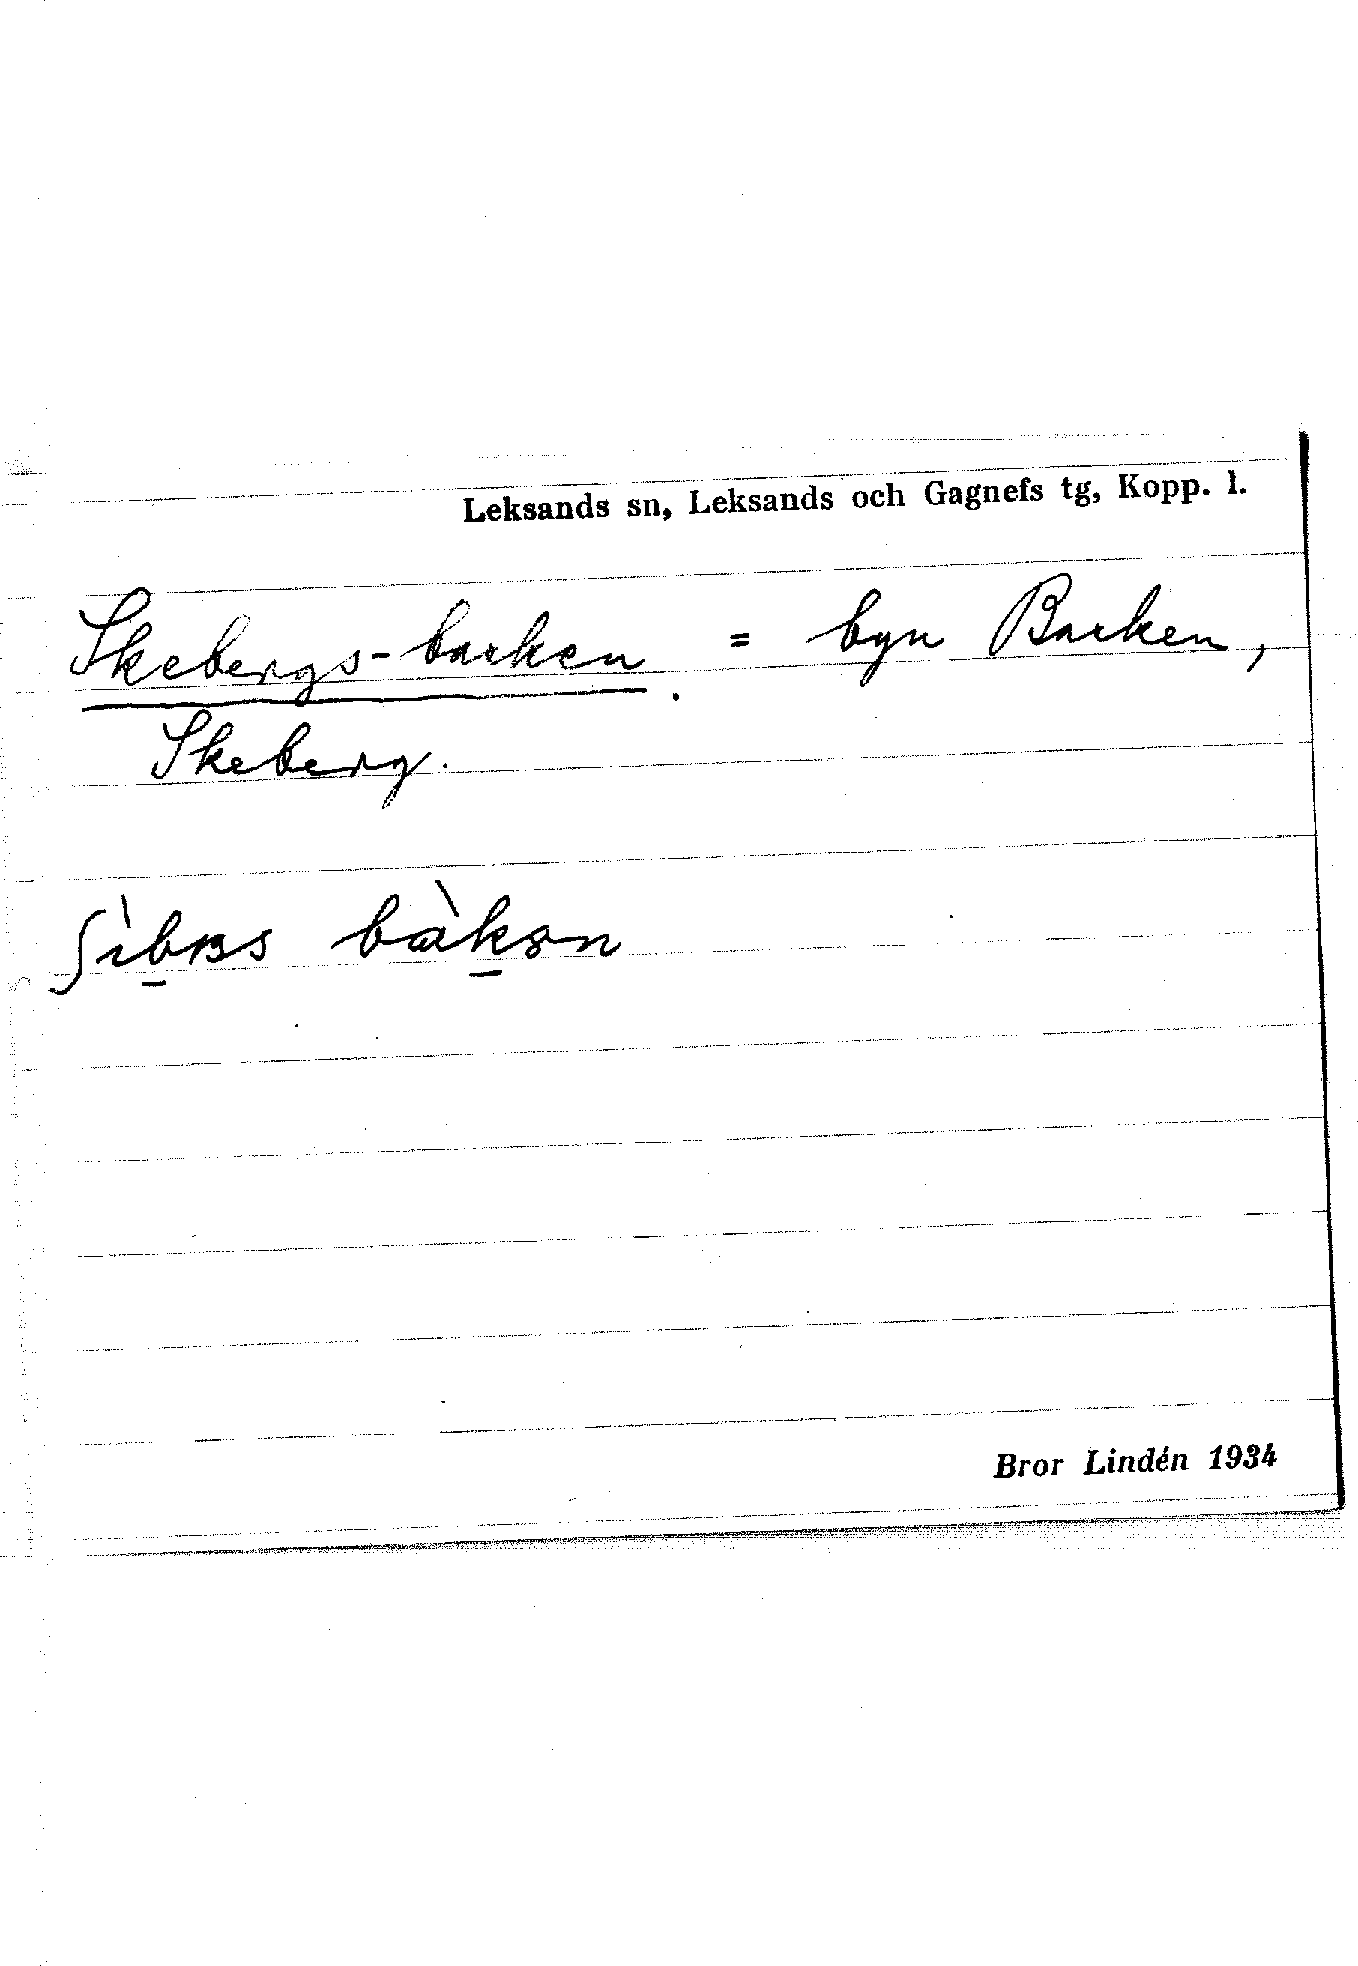 Leksands sn, Leksands och Gagnefs tg, Kopp. l.
Skebergs-barken = byn Barken,
Skeberg.
ʃìbɴs bàkən
Bror Lindén 1934